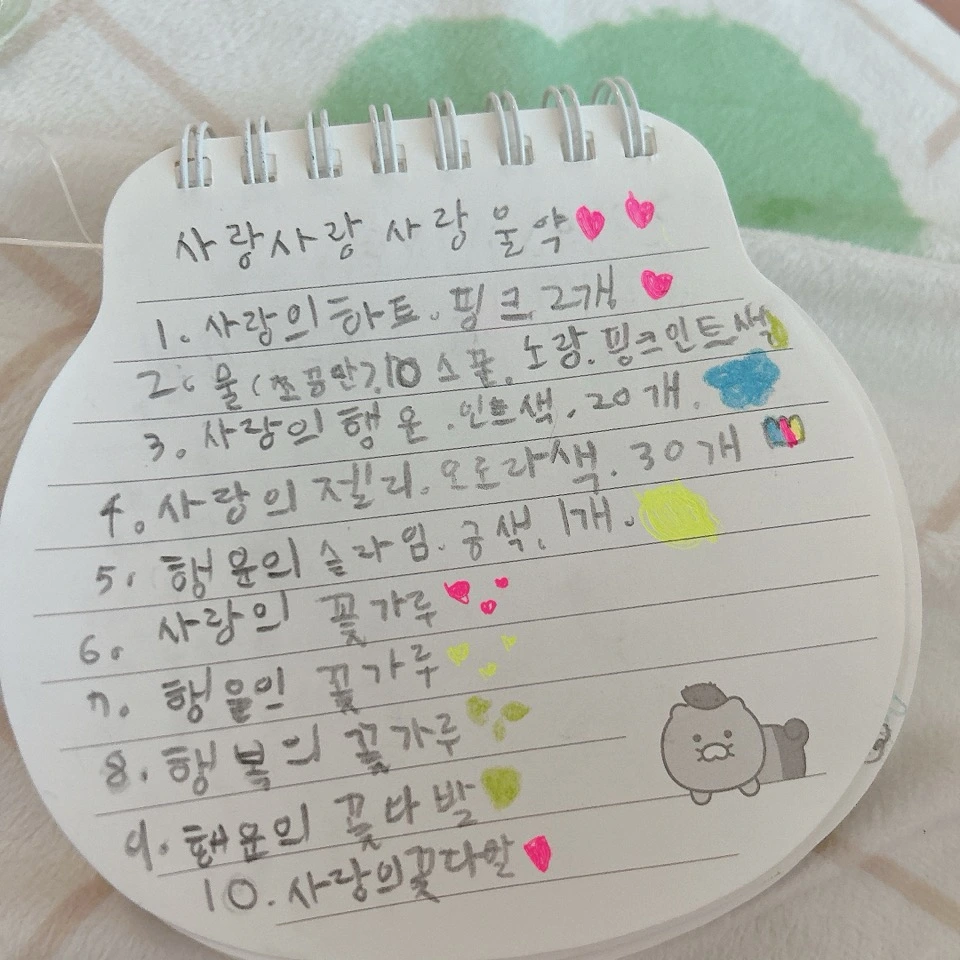 사랑사랑 사랑 물약
1. 사랑의 하트. 핑크 2개
2. 물(쪼끔만?) 10 스푼. 노랑. 핑크민트색
3. 사랑의 행운. 민트색. 20개.
4. 사랑의 젤리. 오로라색. 30개
5. 행운의 슬라임. 금색. 1개.
6. 사랑의 꽃가루
7. 행운의 꽃가루
8. 행복의 꽃가루
9. 행운의 꽃다발
10. 사랑의꽃다발